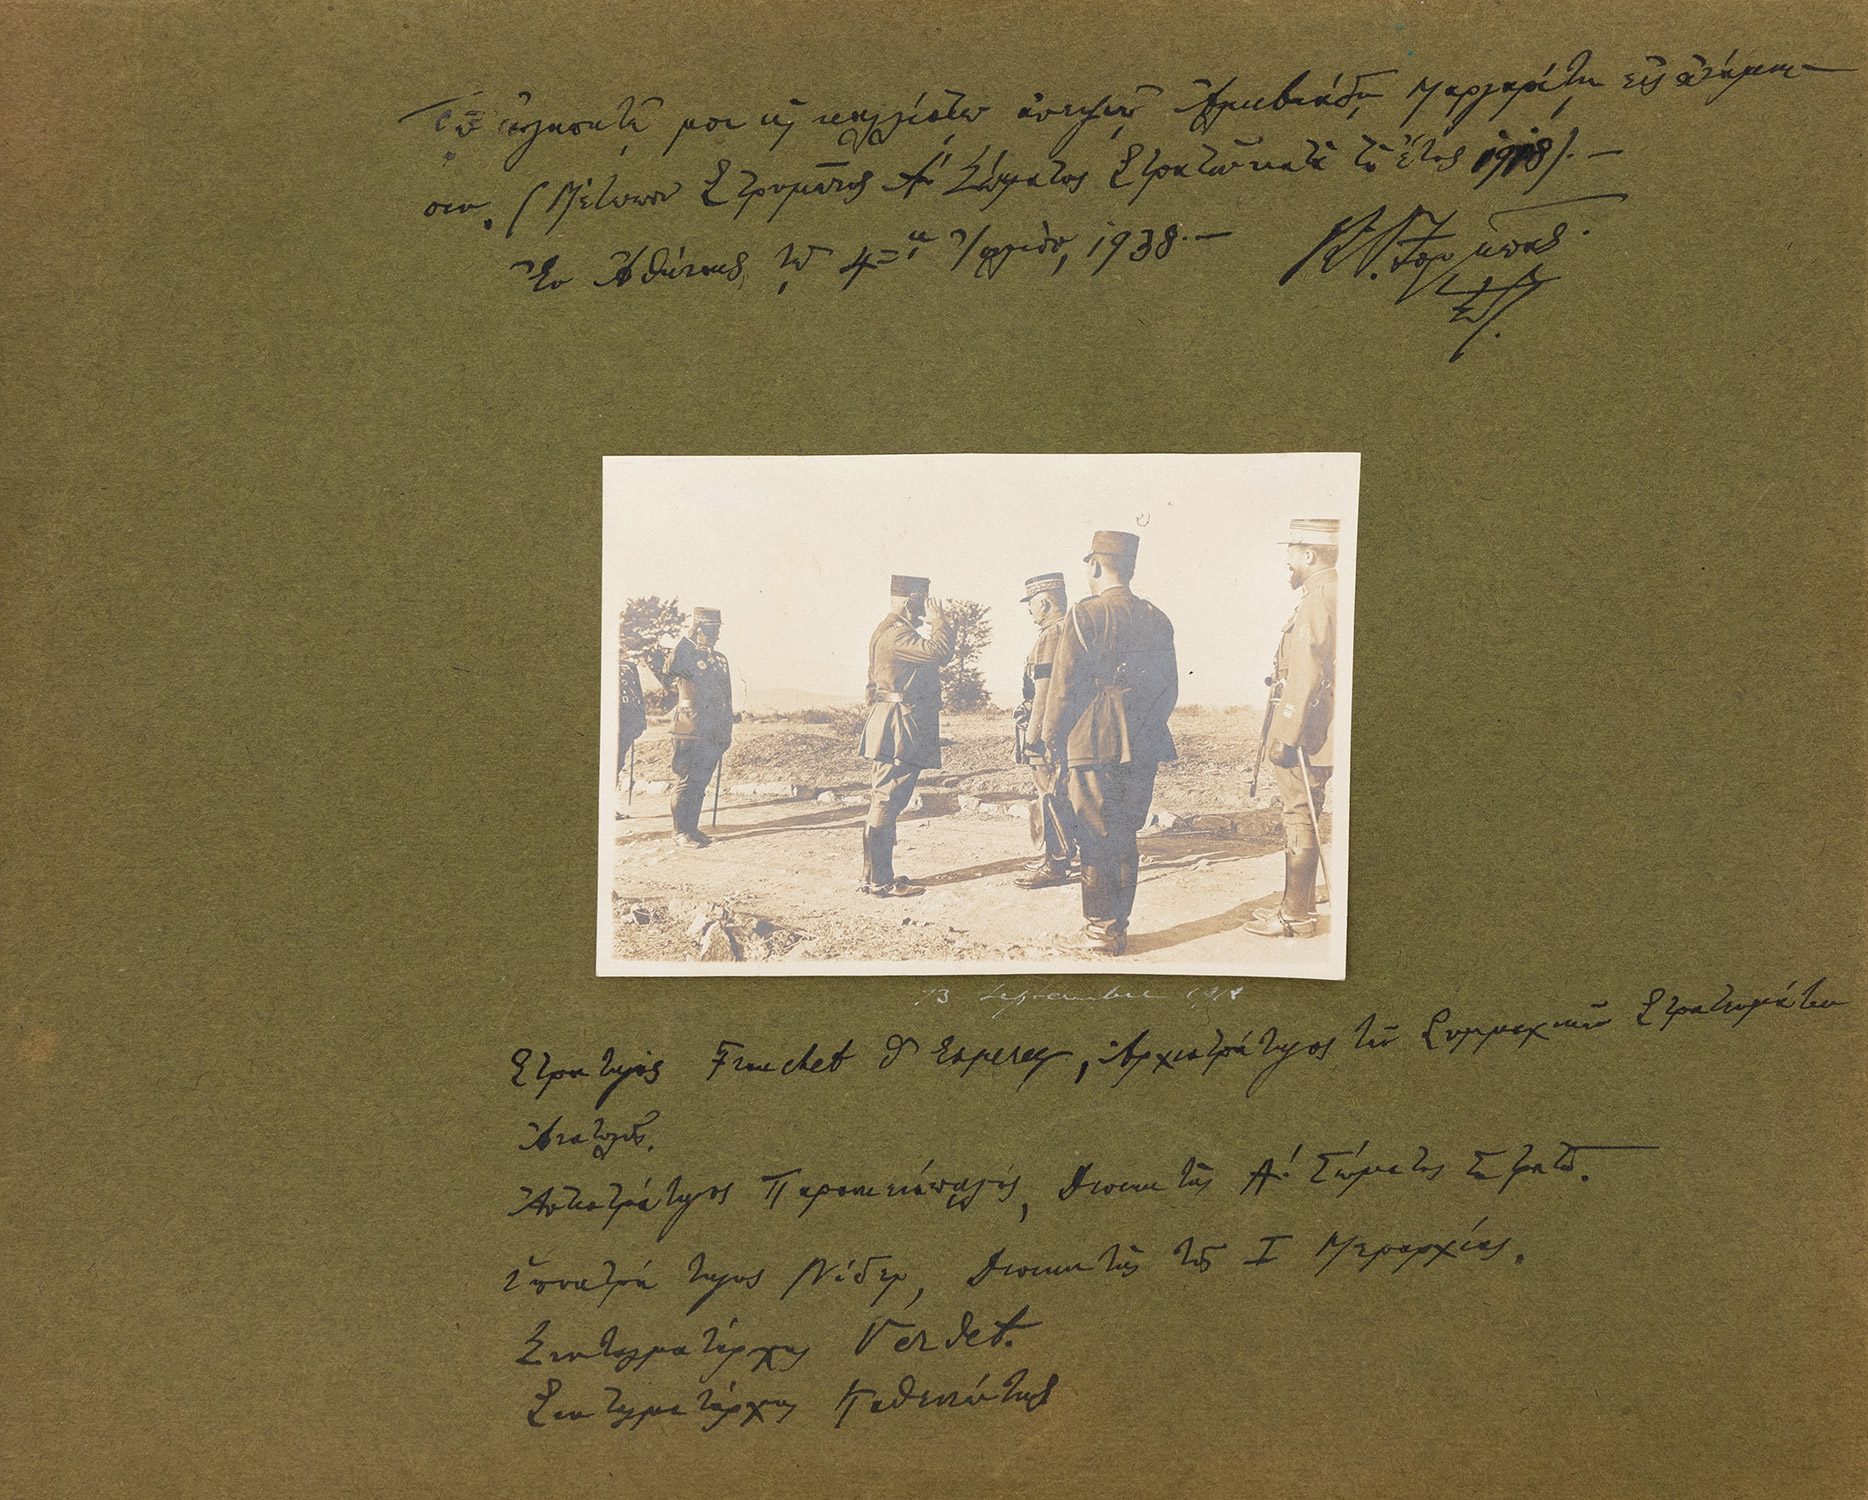 Τῷ ἀγαπητῷ μοι καὶ καλλίστῳ ἀνεψιῷ Ἀλκιβιάδῃ Μαργαρίτῃ εἰς ἀνάμνη-
σιν. (Μέτωπον Στρυμῶνος Α' Σώματος Στρατοῦ κατὰ τὸ ἔτος 1918).-
Ἐν Ἀθήναις τῇ 4ῃ 1938.-
13 Septembre 1918
Στρατηγὸς Franchet d'Esperey, Ἀρχιστράτηγος τῶν Συμμαχικῶν Στρατευμάτων
Ἀνατολῆς.
Ἀντιστράτηγος Παρασκευόπουλος, Διοικητὴς Α' Σώματος Στρατοῦ.
Ὑποστράτηγος Νίδερ, Διοικητὴς τῆς I Μεραρχίας.
Συνταγματάρχης Verdet.
Συνταγματάρχης